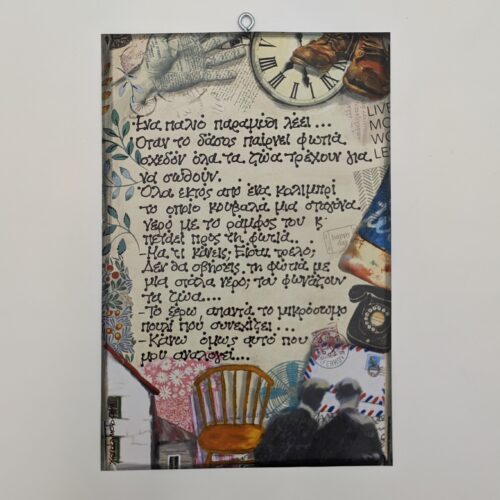 Ένα παλιό παραμύθι λέει...
Όταν το δάσος παίρνει φωτιά
σχεδόν όλα τα ζώα τρέχουν για
να σωθούν.
Όλα εκτός από ένα κολιμπρί
το οποίο κουβαλά μια σταγόνα
νερό με το ράμφος του κ'
πετάει προς τη φωτιά..
-Μα τι κάνεις; Είσαι τρελό;
Δεν θα σβήσεις τη φωτιά με
μια στάλα νερό; του φωνάζουν
τα ζώα....
-Το ξέρω, απαντά το μικρόσωμο
πουλί που συνεχίζει...
-Κάνω όμως αυτό που
μου αναλογεί...
LIVE
MO
WO
LE
happy
day